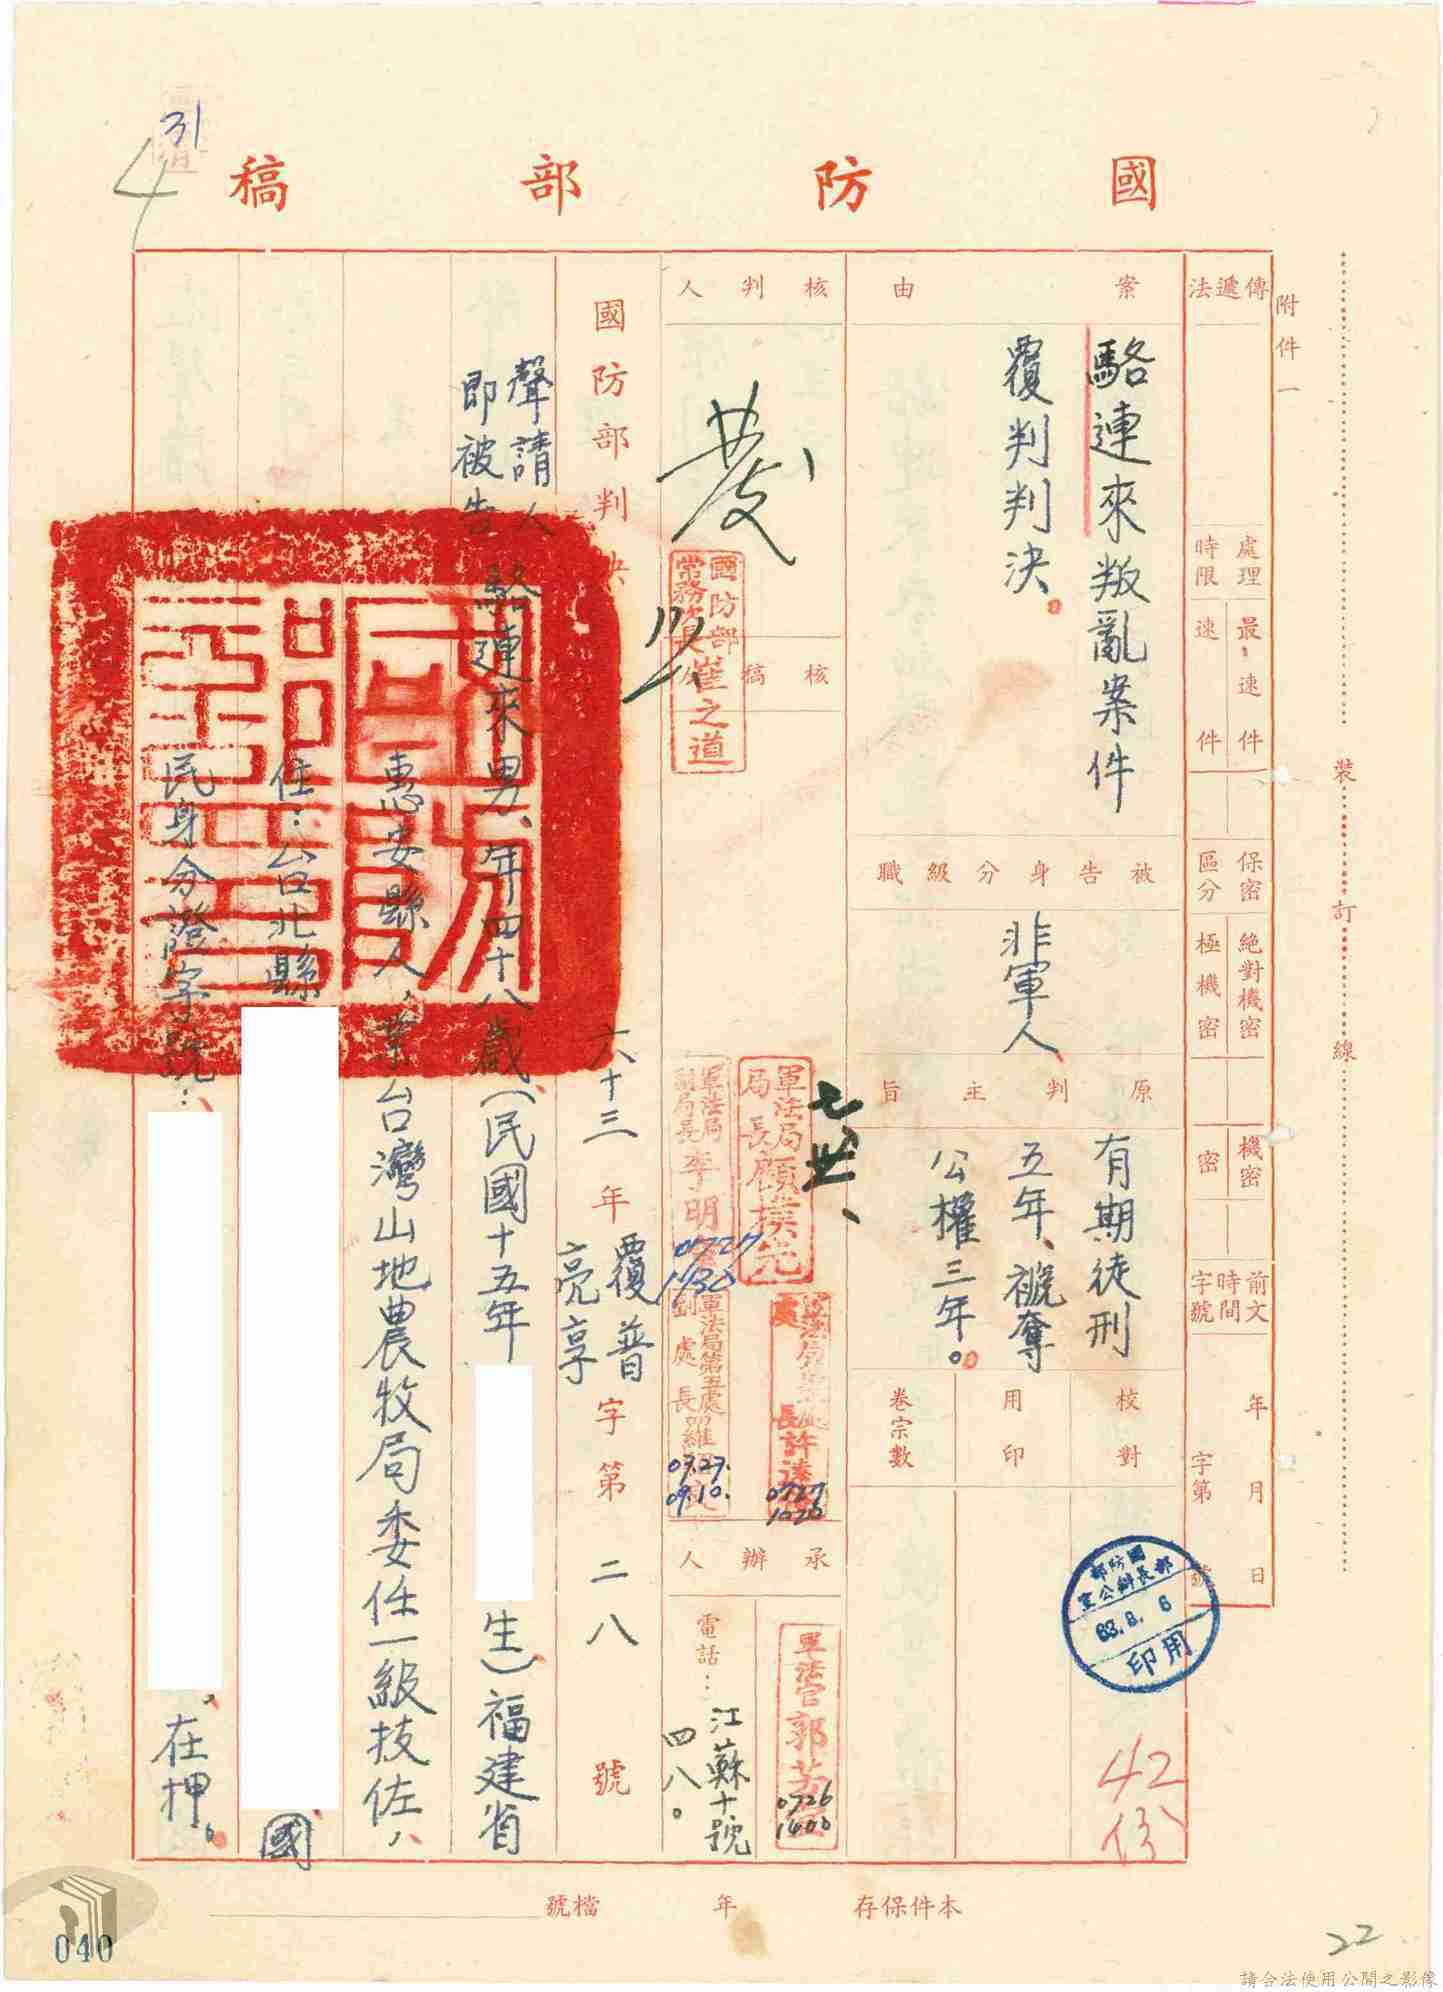 國防部稿
附件一
傳遞法
處理時限
最速件
速件
保密區分
絕對機密
極機密
機密
密
前文時間字號
年月日
字第號
案由
駱連來叛亂案件
覆判判決。
被告身分級職
非軍人
原判主旨
有期徒刑
五年、褫奪
公權三年。
校對
用印
卷宗數
國防部
部長辦公室
63.8.6
用印
42份
核判人
國防部
常務次長崔之道
核稿人
軍法局
局長顧樸先
軍法局
副局長李明
0727
1130
軍法局第五處
副處長羅
07.27.
09.10.
長許
0727
1020
承辦人
軍法官郭
0726
1400
電話：
江蘇十號
四八。
國防部判決
六十三年覆普亮享字第二八號
聲請人
即被告
駱連來男、年四十八歲、（民國十五年
生）福建省
惠安縣人，業台灣山地農牧局委任一級技佐，
住：台北縣
、國
民身分證字號：
、在押。
裝訂線
本件保存
年
檔號
31
4
22
040
請合法使用公開之影像